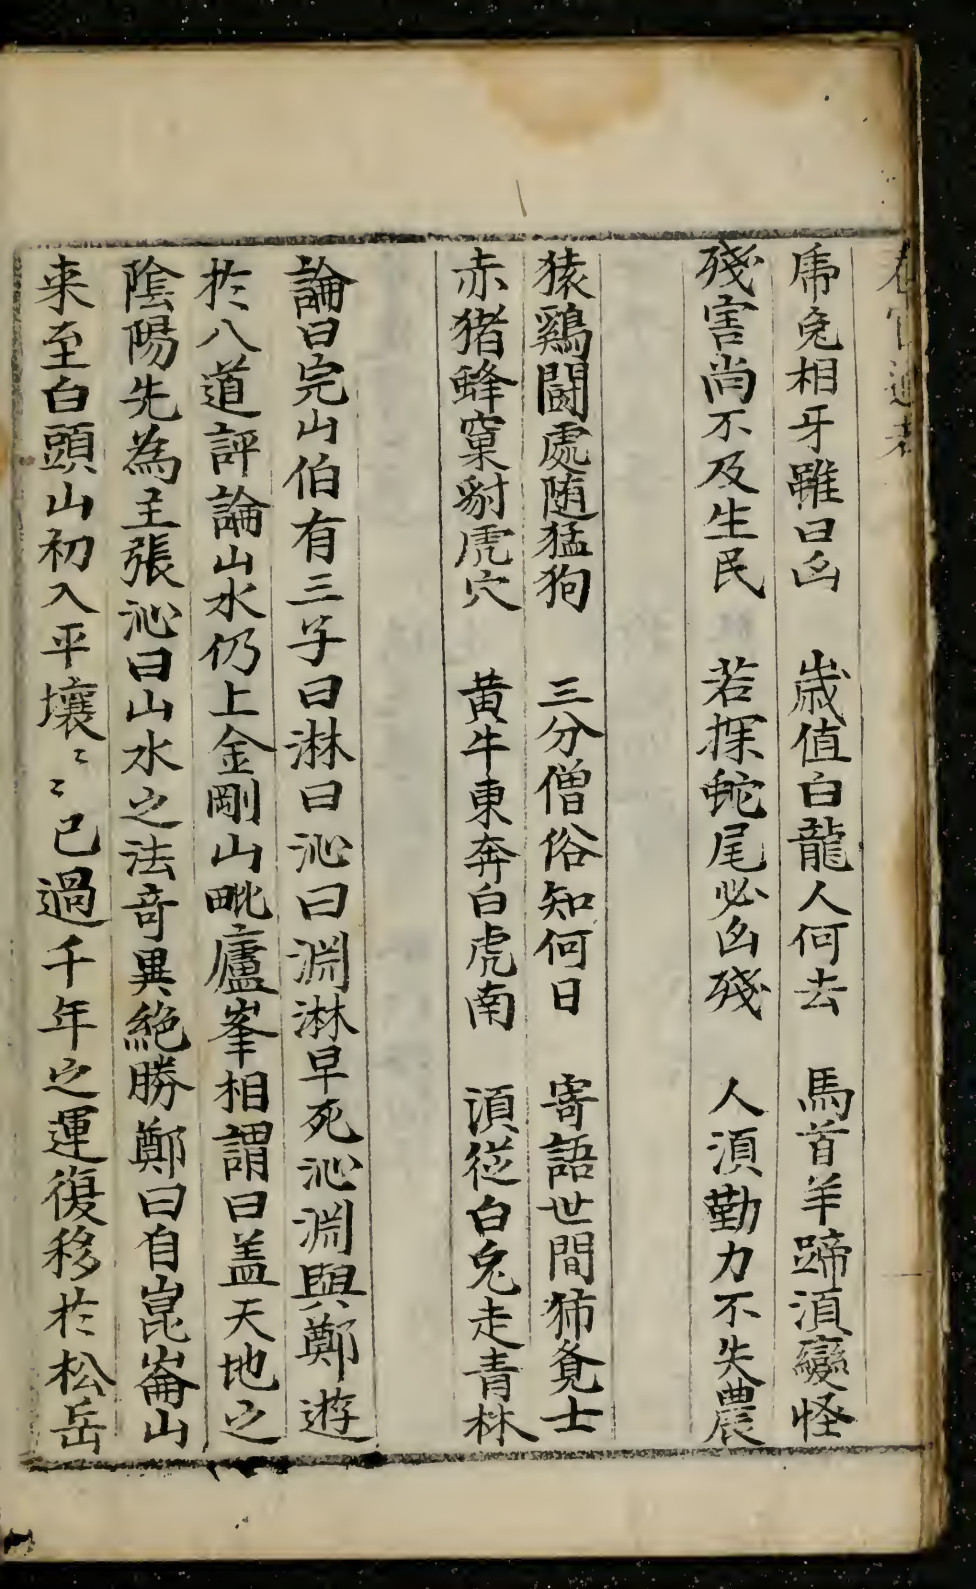 虎兔相牙雖曰凶 歲值白龍人何去 馬首羊蹄湏變怪
殘害尚不及生民 若探蛇尾必凶殘 人湏勤力不失農
猿鷄鬪處随猛狗 三分僧俗知何日 寄語世間覓士
赤猪蜂窠豺虎穴 黄牛東奔白虎南 湏從白兔走青林
論曰完山伯有三子曰淋曰沁曰淵淋早死沁淵與鄭遊
扵八道評論山水仍上金剛山毗廬峯相謂曰盖天地之
陰陽先為主張沁曰山水之法竒異絶勝鄭曰自崑崙山
来至白頭山初入平壤〻〻已過千年之運復移扵松岳